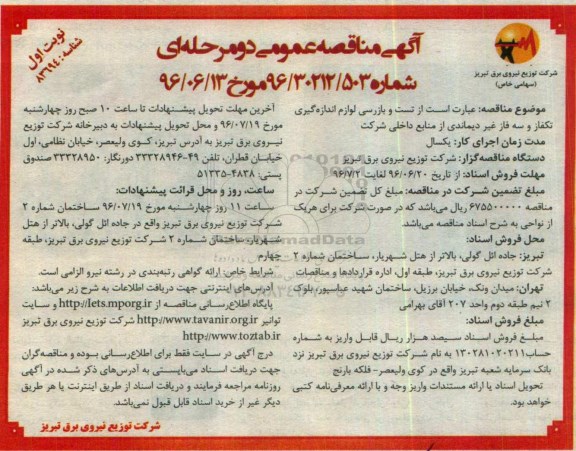 نوبت اول
شناسه: ۸۳۹۴۰
شرکت توزیع نیروی برق تبریز
(سهامی خاص)
آگهی مناقصه عمومی دو مرحله‌ای
شماره ۹۶/۳۰۲۱۲/۵۰۳ مورخ ۹۶/۰۶/۱۳
موضوع مناقصه: عبارت است از تست و بازرسی لوازم اندازه‌گیری
تکفاز و سه فاز غیر دیماندی از منابع داخلی شرکت
مدت زمان اجرای کار: یکسال
دستگاه مناقصه‌گزار: شرکت توزیع نیروی برق تبریز
مهلت فروش اسناد: از تاریخ ۹۶/۰۶/۲۰ لغایت ۹۶/۷/۲
مبلغ تضمین شرکت در مناقصه: مبلغ کل تضمین شرکت در
مناقصه ۶۷۵۵۰۰۰۰۰ ریال می‌باشد که در صورت شرکت برای هریک
از نواحی به شرح اسناد مناقصه می‌باشد.
محل فروش اسناد:
تبریز: جاده ائل گولی، بالاتر از هتل شهریار، ساختمان شماره ۲
شرکت توزیع نیروی برق تبریز، طبقه اول، اداره قراردادها و مناقصات
تهران: میدان ونک، خیابان برزیل، ساختمان شهید عباسپور، بلوک
۲ نیم طبقه دوم واحد ۲۰۷ آقای بهرامی
مبلغ فروش اسناد:
مبلغ فروش اسناد سیصد هزار ریال قابل واریز به شماره
حساب ۱۳۰۲۸۱۰۲۰۲۱۱ به نام شرکت توزیع نیروی برق تبریز نزد
بانک سرمایه شعبه تبریز واقع در کوی ولیعصر- فلکه بارنج
تحویل اسناد با ارائه مستندات واریز وجه و با ارائه معرفی‌نامه کتبی
خواهد بود.
آخرین مهلت تحویل پیشنهادات تا ساعت ۱۰ صبح روز چهارشنبه
مورخ ۹۶/۰۷/۱۹ و محل تحویل پیشنهادات به دبیرخانه شرکت توزیع
نیروی برق تبریز به آدرس تبریز، کوی ولیعصر، خیابان نظامی، اول
خیابان قطران، تلفن ۴۹-۳۳۳۲۸۹۴۶ دورنگار: ۳۳۳۲۸۹۵۰ صندوق
پستی: ۴۸۳۸-۵۱۳۳۵
ساعت، روز و محل قرائت پیشنهادات:
ساعت ۱۱ روز چهارشنبه مورخ ۹۶/۰۷/۱۹ ساختمان شماره ۲
شرکت توزیع نیروی برق تبریز واقع در جاده ائل گولی، بالاتر از هتل
شهریار، ساختمان شماره ۲ شرکت توزیع نیروی برق تبریز، طبقه
چهارم
شرایط خاص: ارائه گواهی رتبه‌بندی در رشته نیرو الزامی است.
آدرس‌های اینترنتی جهت دریافت اطلاعات به شرح زیر می‌باشد:
پایگاه اطلاع‌رسانی مناقصه از http://iets.mporg.ir و سایت
توانیر http://www.tavanir.org.ir شرکت توزیع نیروی برق تبریز
http://www.toztab.ir
درج آگهی در سایت فقط برای اطلاع‌رسانی بوده و مناقصه‌گران
جهت دریافت اسناد می‌بایستی به آدرس‌های ذکر شده در آگهی
روزنامه مراجعه فرمایند و دریافت اسناد از طریق اینترنت یا هر طریق
دیگر غیر از خرید اسناد قابل قبول نمی‌باشد.
شرکت توزیع نیروی برق تبریز